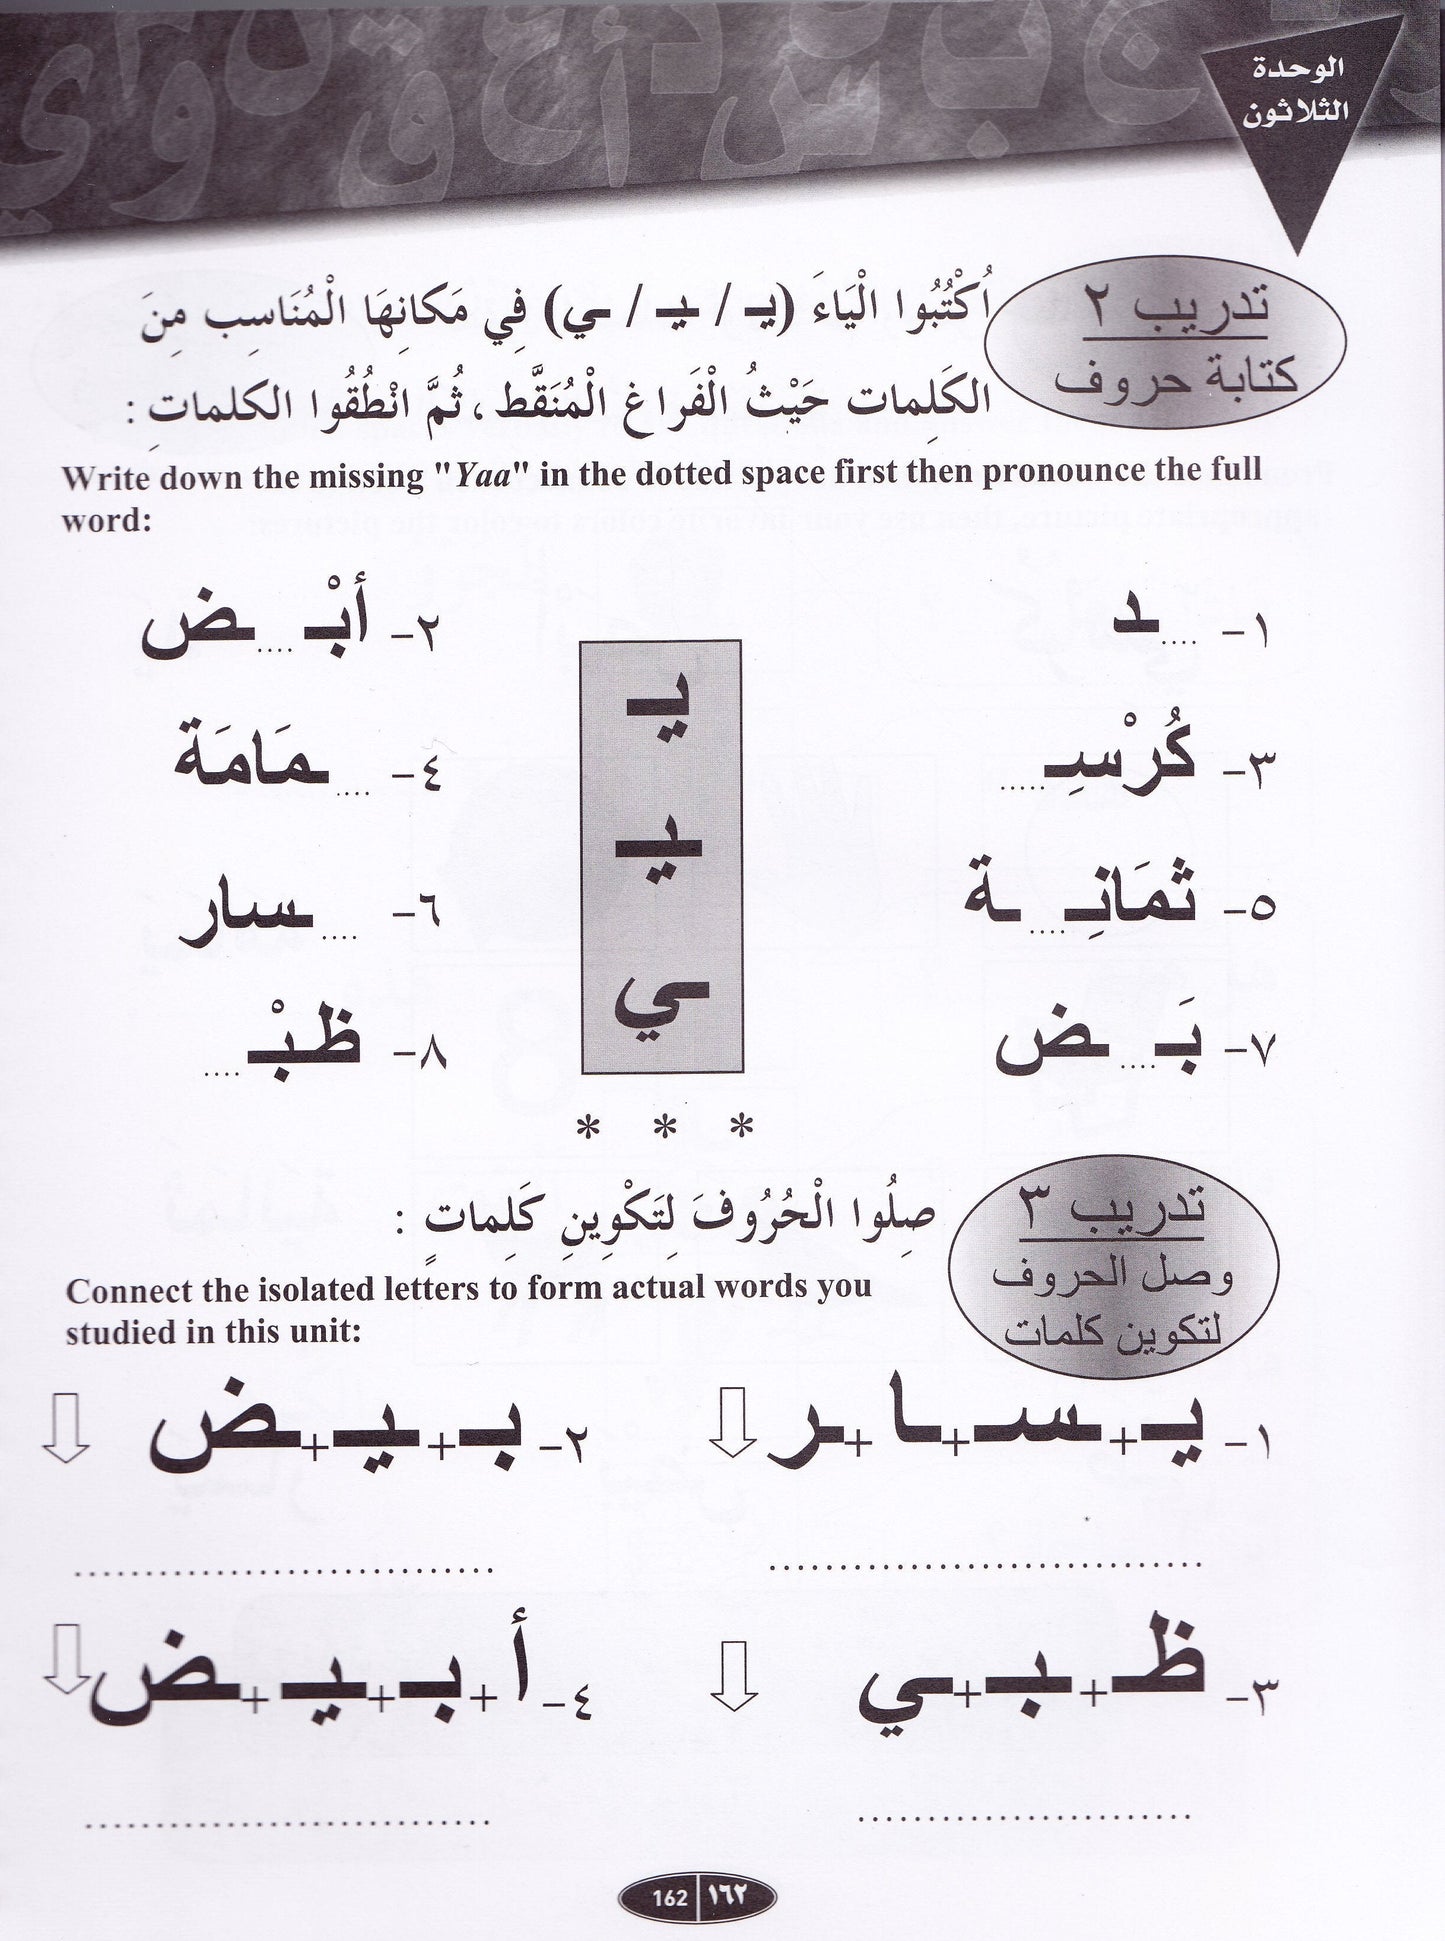 الوحدة
الثلاثون
تدريب ٢
كتابة حروف
اُكْتُبُوا الْيَاءَ (يـ / ـيـ / ـي) فِي مَكانِهَا الْمُنَاسِبِ مِنَ
الكَلِمات حَيْثُ الْفَراغ الْمُنَقَّط، ثُمَّ انْطُقُوا الكلماتِ :
Write down the missing "Yaa" in the dotted space first then pronounce the full
word:
١- ....ـد
٢- أبْـ....ـض
٣- كُرْسِـ.....
٤- ....ـمَامَة
٥- ثمَانِـ....ـة
٦- ....ـسار
٧- بَـ....ـض
٨- ظـبْـ....
يـ
ـيـ
ـي
* * *
تدريب ٣
وصل الحروف
لتكوين كلمات
صِلُوا الْحُرُوفَ لِتَكْوِينِ كَلِماتٍ :
Connect the isolated letters to form actual words you
studied in this unit:
١- يـ+ـسـ+ـا+ـر
٢- بـ+ـيـ+ـض
..............................
..............................
٣- ظـ+ـبـ+ـي
٤- أ+بـ+ـيـ+ـض
..............................
..............................
162 ١٦٢